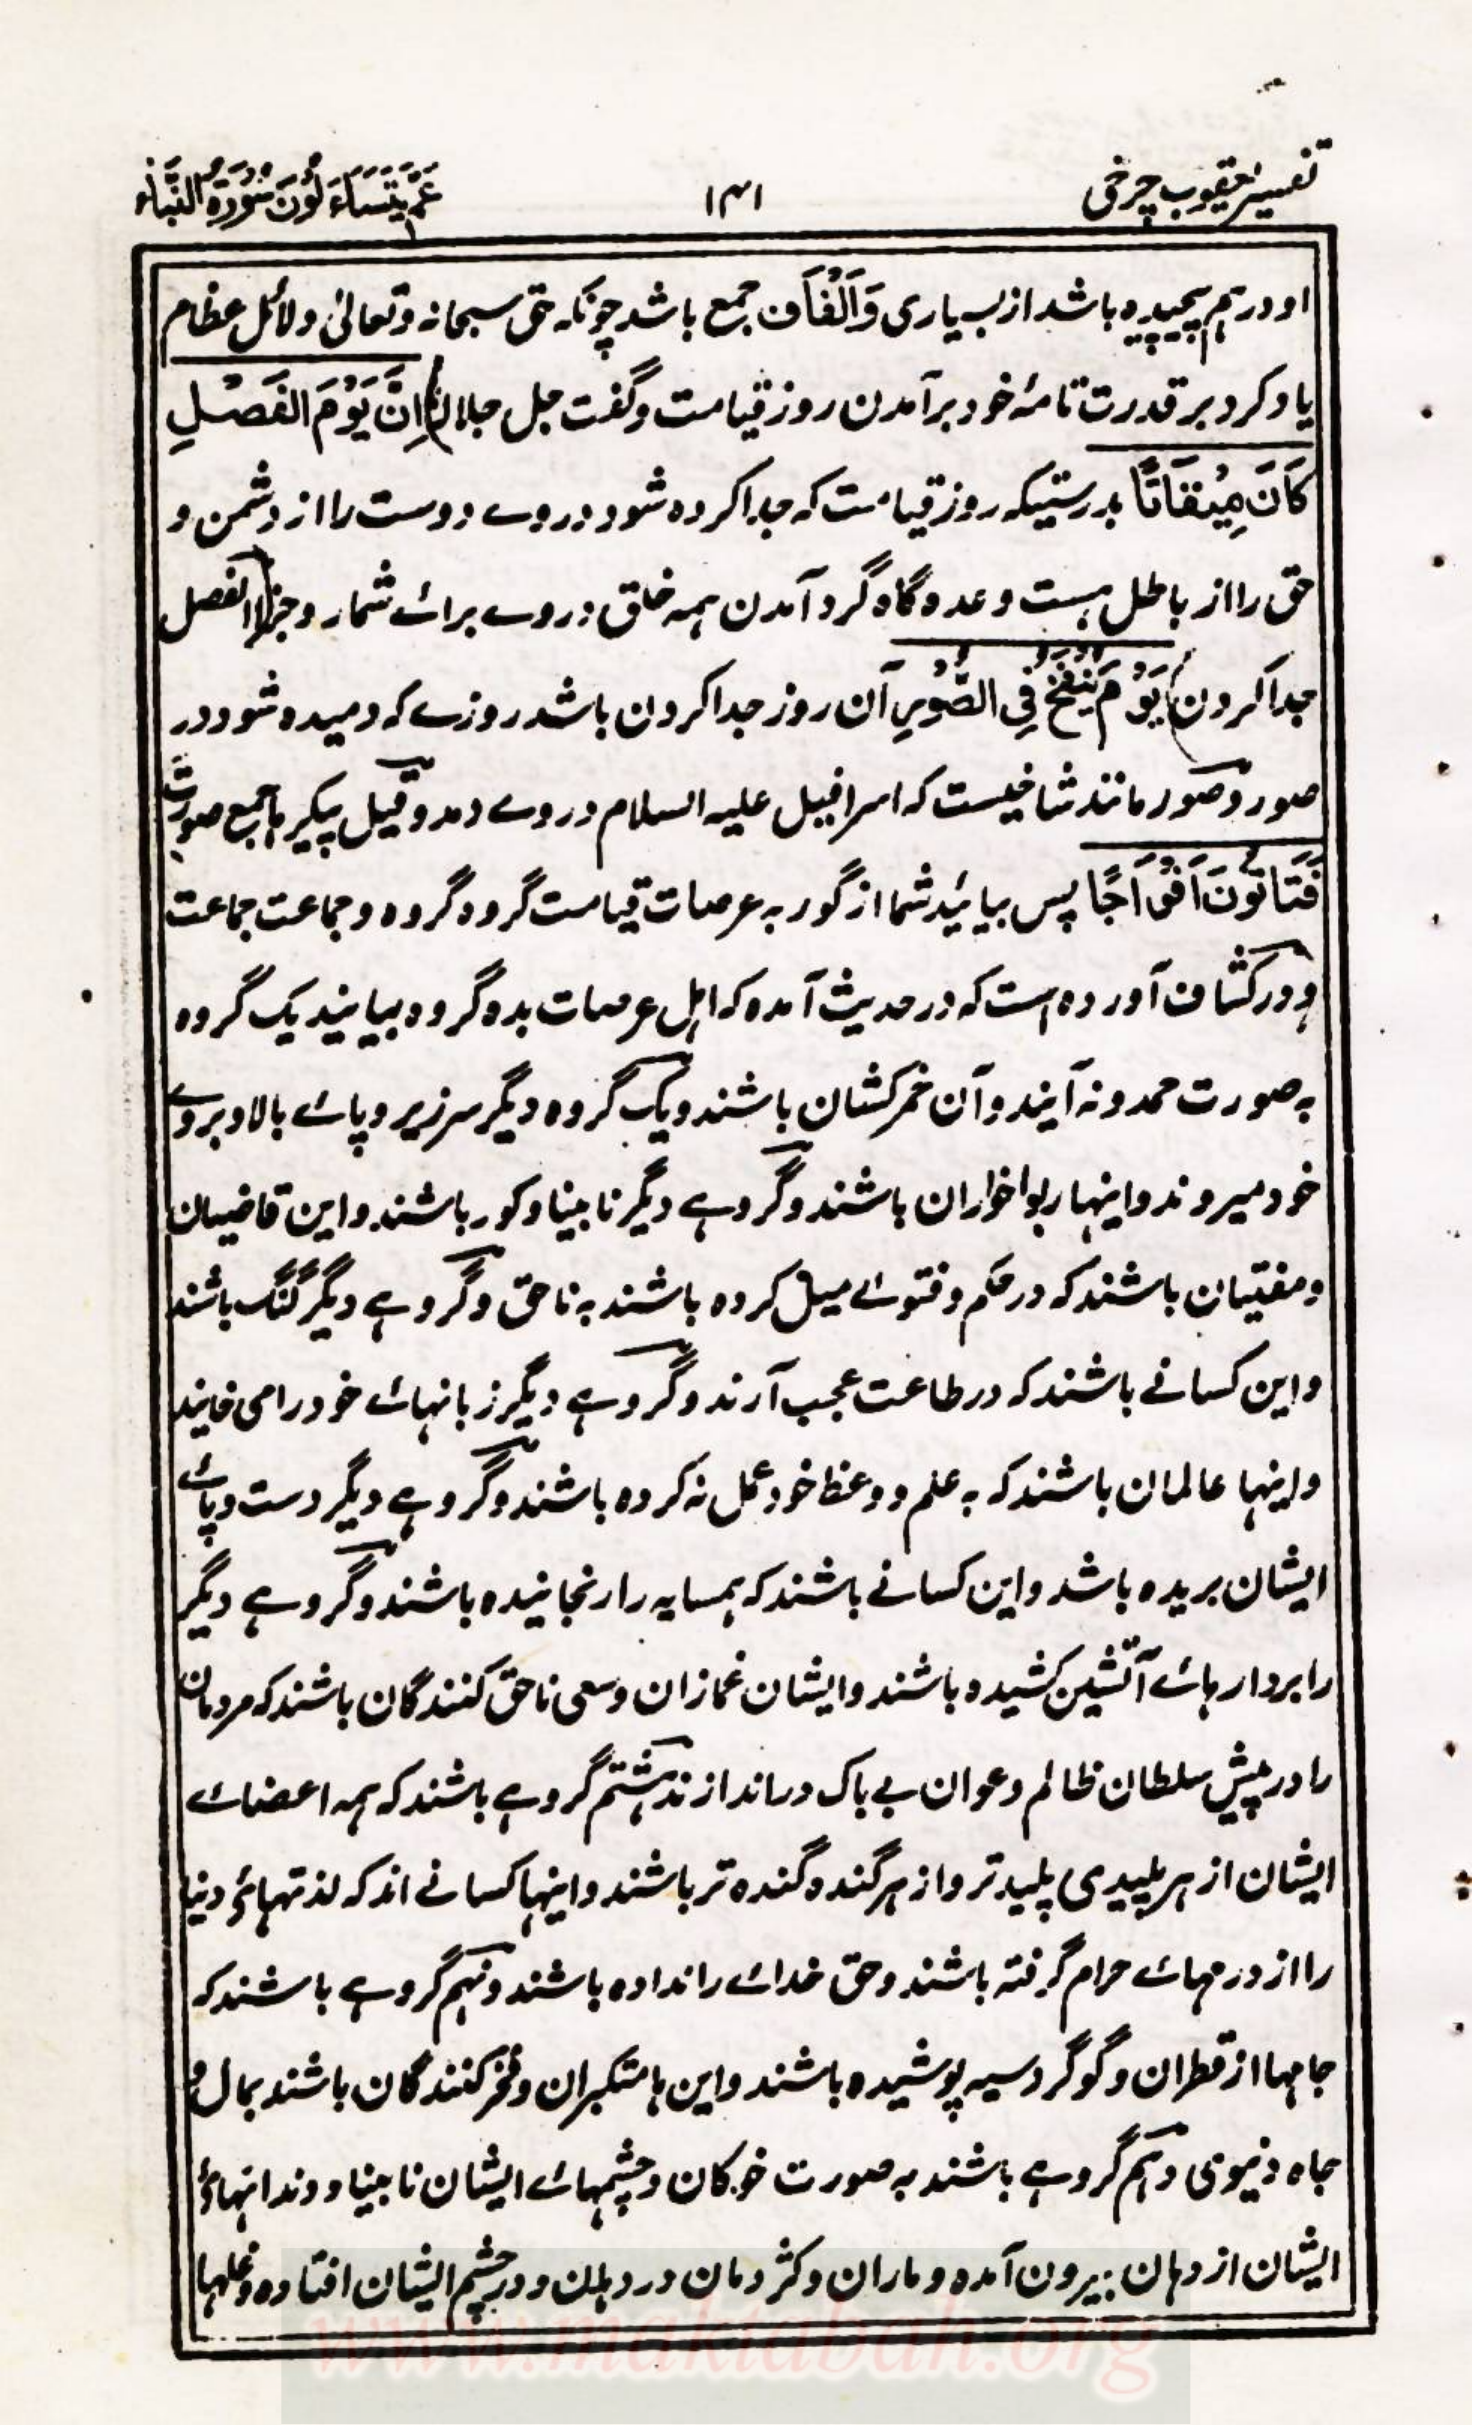 تفسیر یعقوب چرخی
۱۴۱
عَمَّ یَتَسَاءَلُوْنَ سُوْرَةُ النَّبَاء
او درہم پیچیدہ باشد از بسیاری وَاَلْفَاف جمع باشد چونکہ حق سبحانہ وتعالیٰ دلائل عظام
یاد کرد بر قدرت تامۂ خود بر آمدن روز قیامت وگفت جل جلالہ اِنَّ یَوْمَ الْفَصْلِ
کَانَ مِیْقَاتًا بدرستیکہ روز قیامت کہ جدا کردہ شود دروے دوست را از دشمن و
حق را از باطل ہست وعدہ گاہ گرد آمدن ہمہ خلق دروے برائے شمار وجزا الفصل
جدا کردن یَوْمَ یُنْفَخُ فِی الصُّوْرِ آن روز جدا کردن باشد روزے کہ دمیدہ شود در
صور وصور مانند شاخیست کہ اسرافیل علیہ السلام دروے دمد وقیل پیکرہا جمع صورت
فَتَاتُوْنَ اَفْوَاجًا پس بیائید شما از گور بہ عرصات قیامت گروہ گروہ وجماعت جماعت
ودر کشاف آوردہ است کہ در حدیث آمدہ کہ اہل عرصات بدہ گروہ بیایند یک گروہ
بہ صورت حمدونہ آیند وآن خمرکشان باشند ویک گروہ دیگر سرزیر وپائے بالا وبروے
خود میروند واینہا ربواخواران باشند وگروہے دیگر نابینا وکور باشند واین قاضیان
ومفتیان باشند کہ در حکم وفتوے میل کردہ باشند بہ ناحق وگروہے دیگر گنگ باشند
واین کسانے باشند کہ در طاعت عجب آرند وگروہے دیگر زبانہائے خود را می خایند
واینہا عالمان باشند کہ بہ علم ووعظ خود عمل نہ کردہ باشند وگروہے دیگر دست وپائے
ایشان بریدہ باشد واین کسانے باشند کہ ہمسایہ را رنجانیدہ باشند وگروہے دیگر
را بردارہائے آتشین کشیدہ باشند وایشان غمازان وسعی ناحق کنندگان باشند کہ مردمان
را در پیش سلطان ظالم وعوان بے باک در اندازند ہشتم گروہے باشند کہ ہمہ اعضائے
ایشان از ہر پلیدی پلیدتر واز ہر گندہ گندہ تر باشند واینہا کسانے اند کہ لذتہائے دنیا
را از درمہائے حرام گرفتہ باشند وحق خدائے را ندادہ باشند ونہم گروہے باشند کہ
جامہا از قطران وگوگرد سیہ پوشیدہ باشند واین ہا متکبران وفخر کنندگان باشند بمال و
جاہ دنیوی دہم گروہے باشند بہ صورت خوکان وچشمہائے ایشان نابینا ودندانہائے
ایشان از دہان بیرون آمدہ وماران وکژدمان در دہان ودر چشم ایشان افتادہ وغلہا
www.maktabah.org